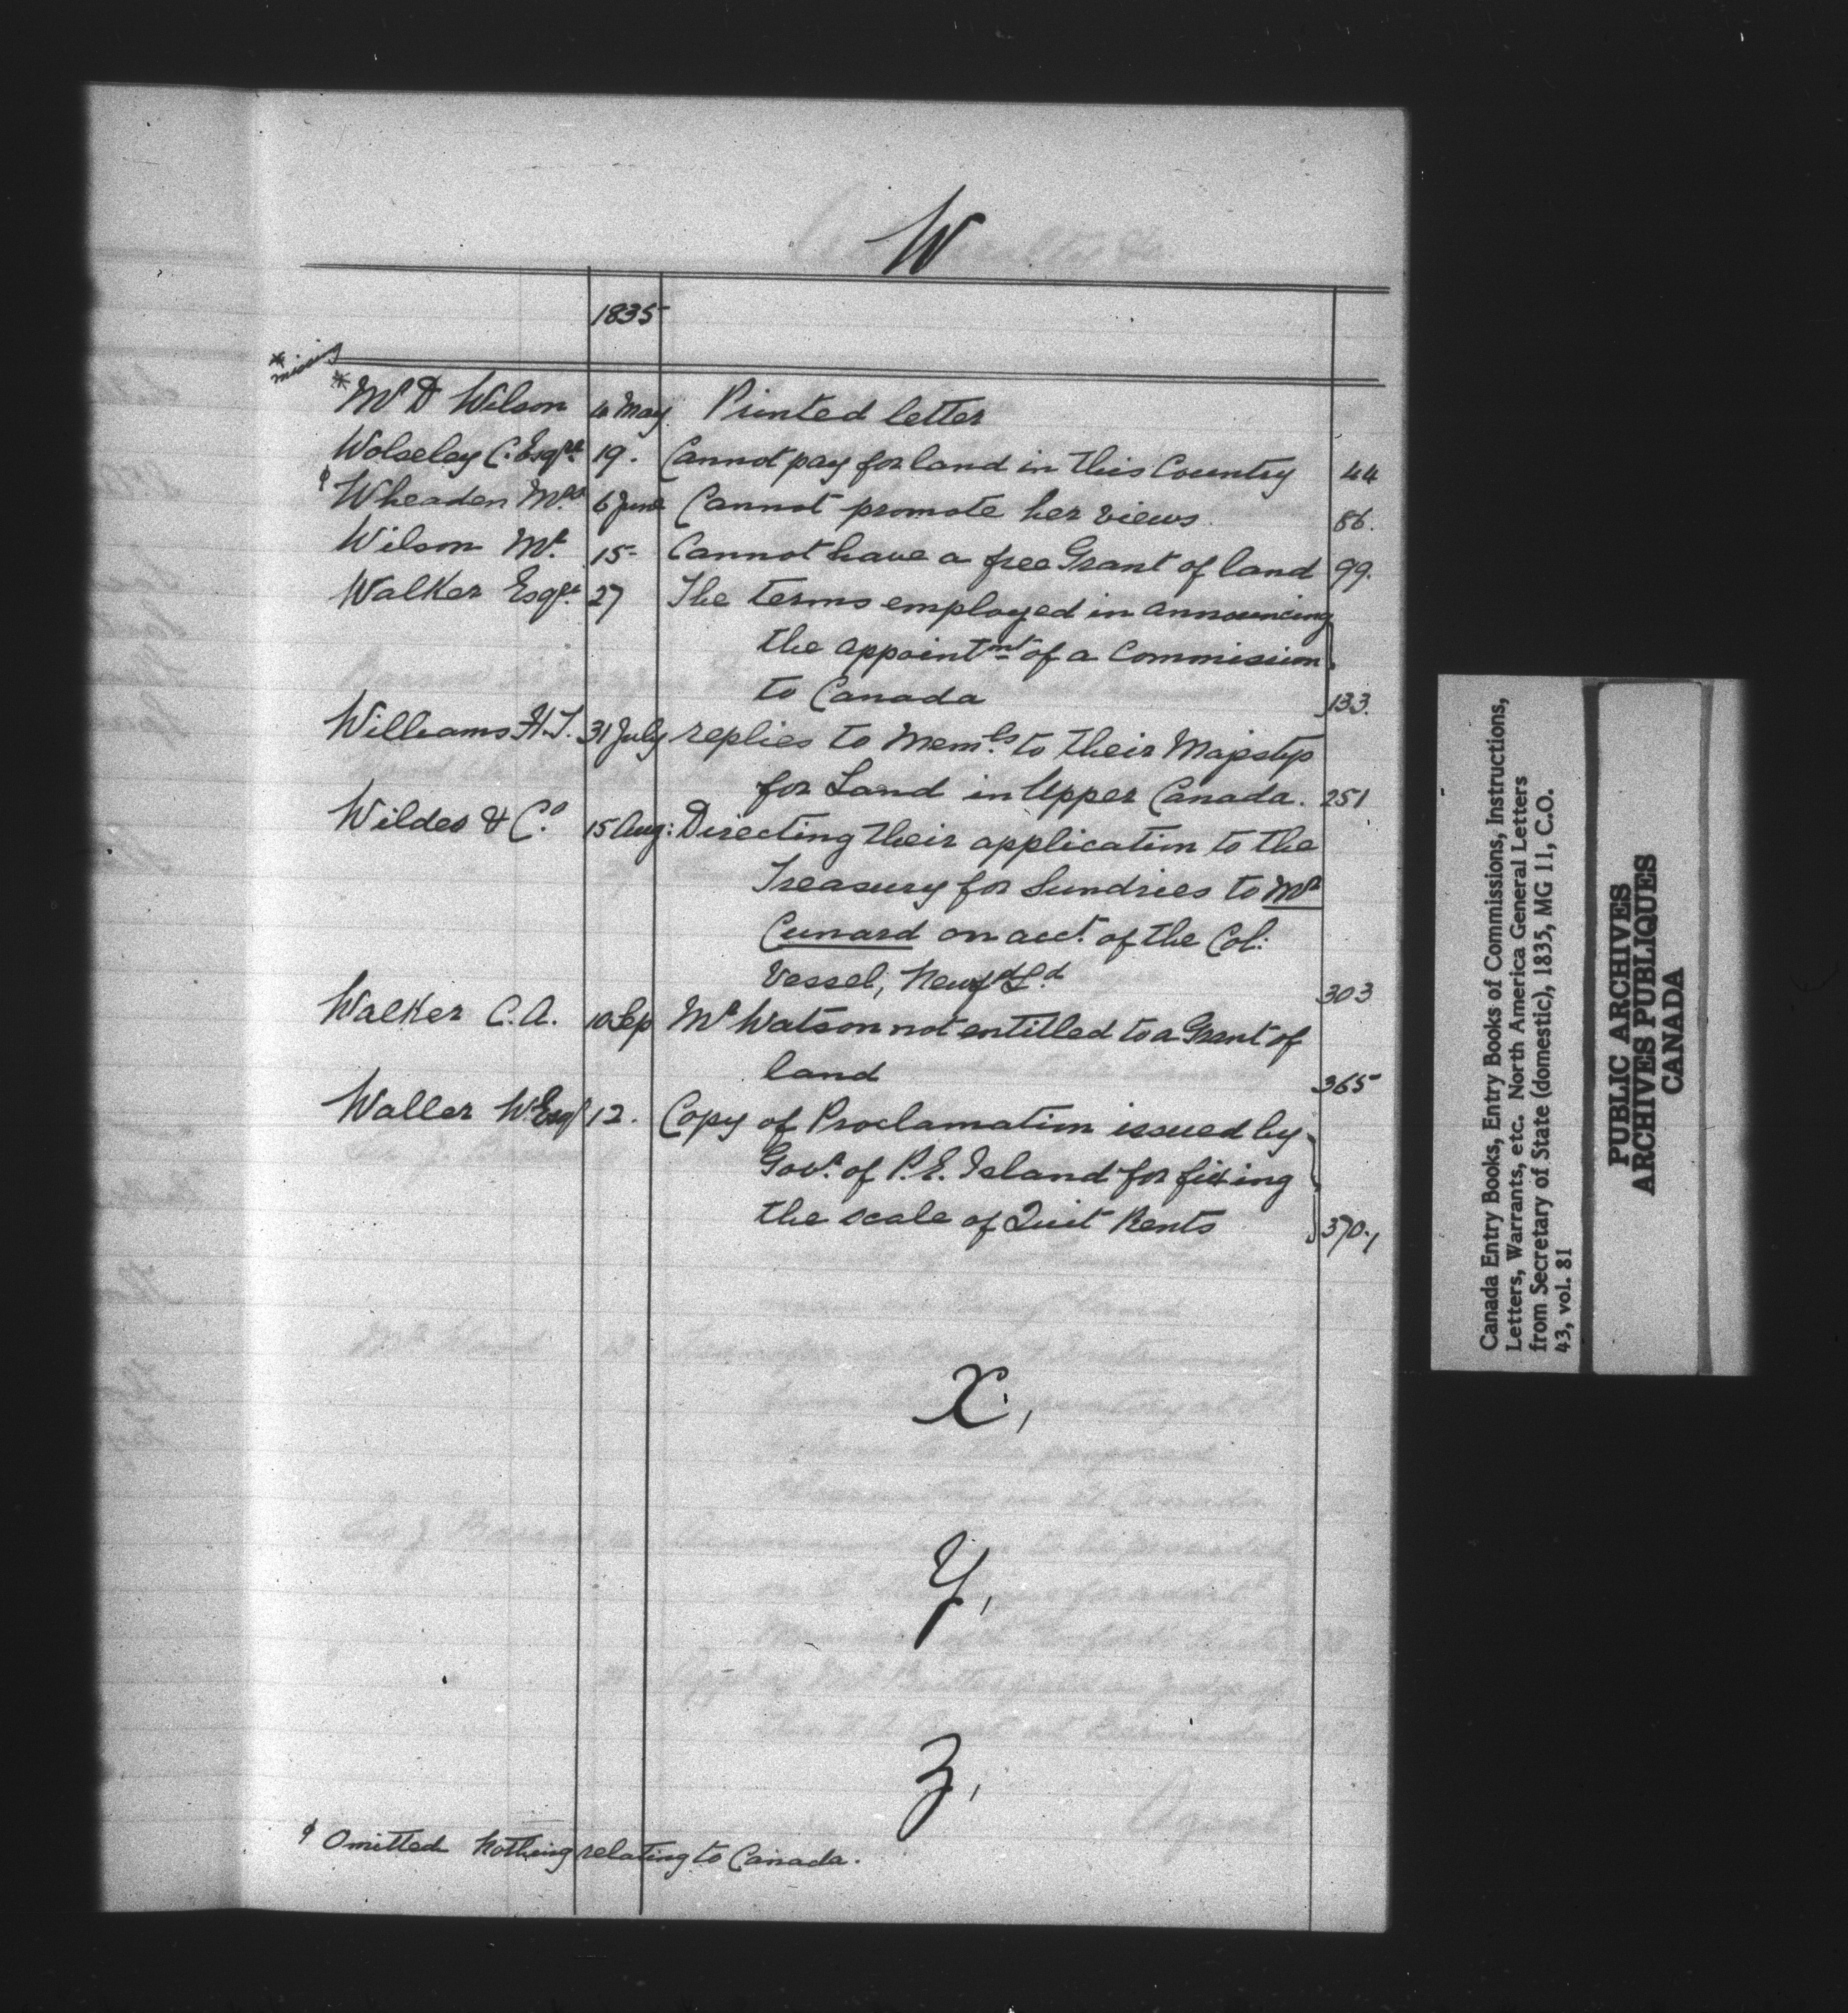 W
1835
* missing
* Mr D Wilson 10 May Printed letter
Wolseley C. Esqre. 19. Cannot pay for land in this Country 44
φ Wheaden Mrs. 6 June Cannot promote her views. 86.
Wilson Mr. 15- Cannot have a free Grant of land 99.
Walker Esqre. 27 The terms employed in announcing
the appointmt of a Commission
to Canada 133.
Williams H.T. 31 July replies to Memls. to their Majestys
for Land in Upper Canada. 251
Wildes & Co. 15 Aug: Directing their application to the
Treasury for Sundries to Mr
Cunard on acct. of the Col:
Vessel, Newfd Ld 303
Walker C.A. 10 Sep Mr Watson not entitled to a Grant of
land 365
Waller W. Esqr 12. Copy of Proclamation issued by
Govr. of P.E. Island for fixing
the scale of Quit Rents 370.1
X,
Y,
Z,
φ Omitted Nothing relating to Canada.
Canada Entry Books, Entry Books of Commissions, Instructions,
Letters, Warrants, etc. North America General Letters
from Secretary of State (domestic), 1835, MG 11, C.O.
43, vol. 81
PUBLIC ARCHIVES
ARCHIVES PUBLIQUES
CANADA